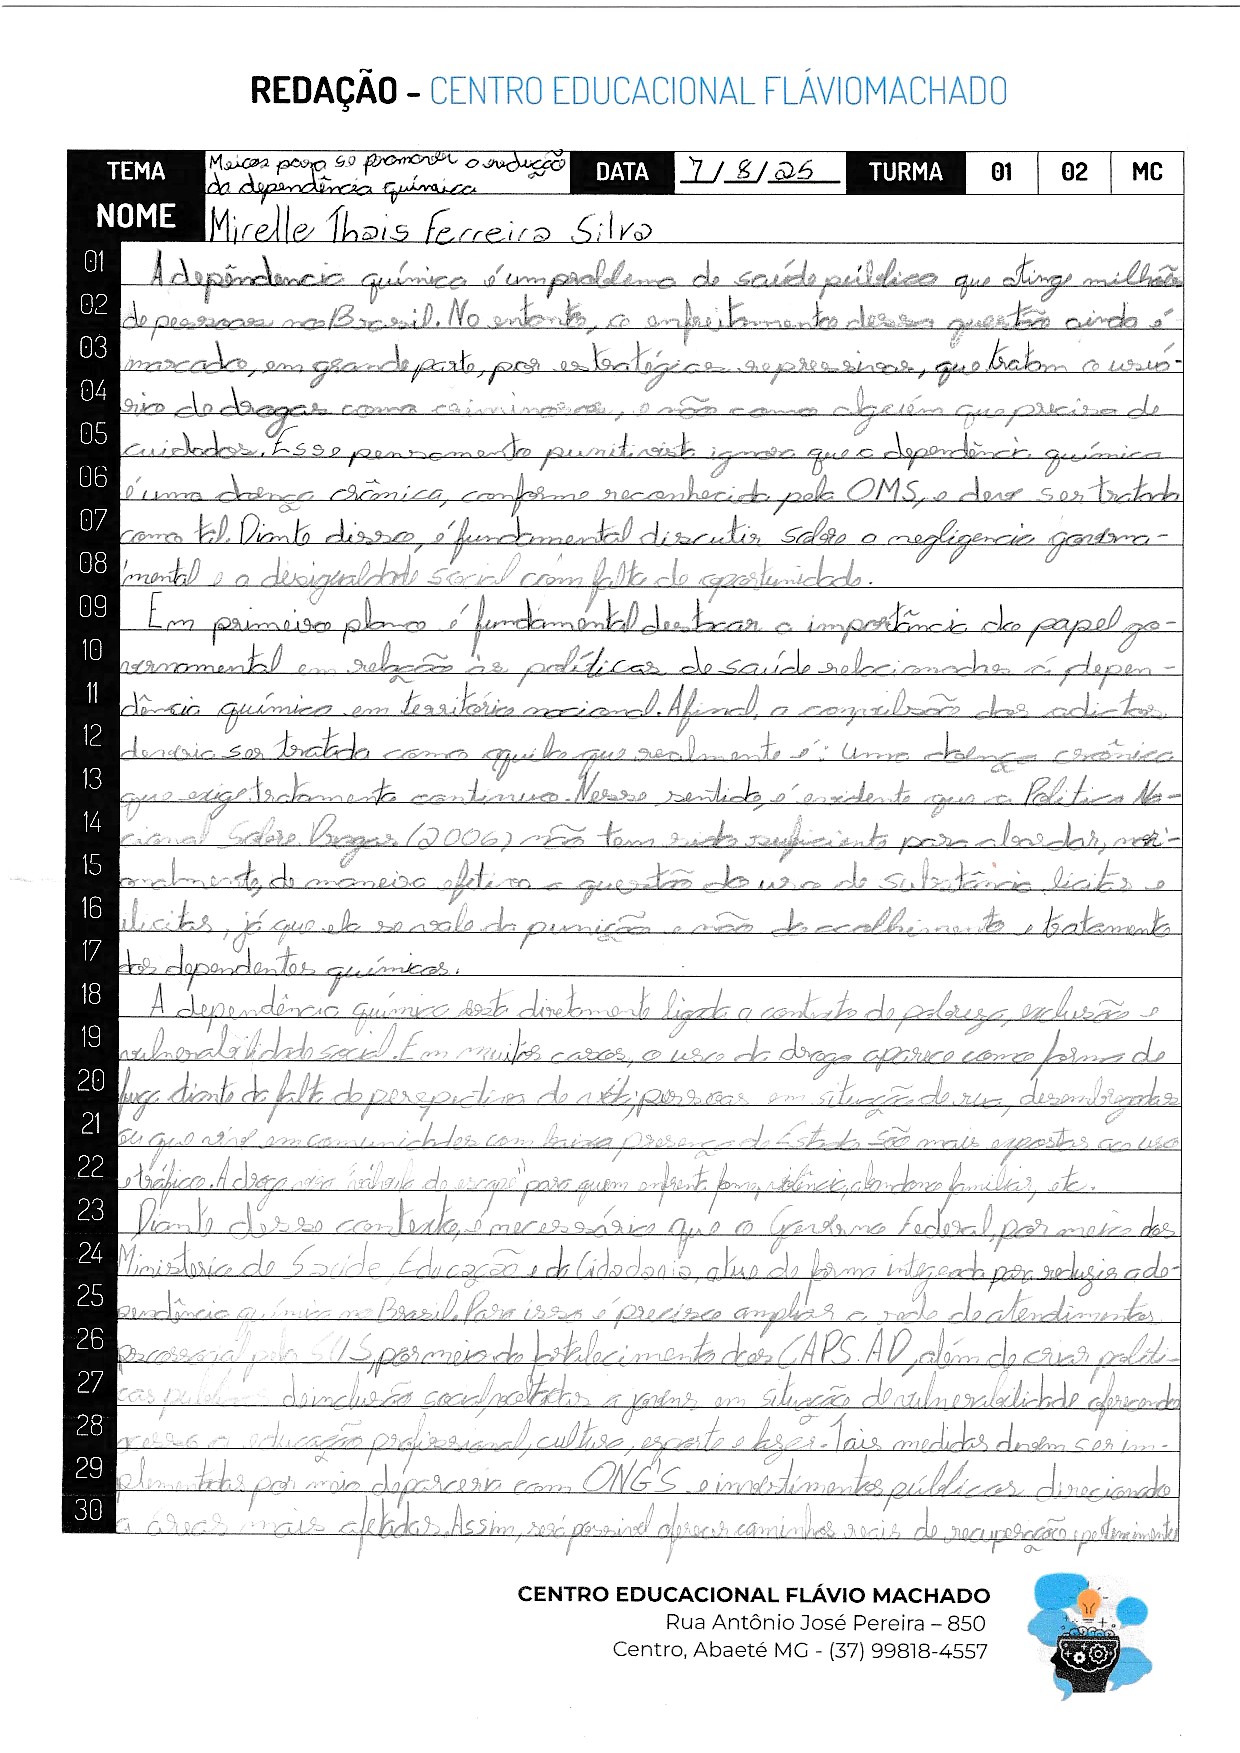 REDAÇÃO - CENTRO EDUCACIONAL FLÁVIOMACHADO
TEMA Meios para se promover a redução DATA 7/8/25 TURMA 01 02 MC
da dependência química
NOME Mirelle Thais Ferreira Silva
01 A depêndencia química é um problema de saúde pública que atinge milhões
02 de pessoas no Brasil. No entanto, o enfreitamento dessa questão ainda é
03 marcado, em grande parte, por estratégicas repressivas, que tratam o usuá-
04 rio de drogas como criminosos, e não como alguém que precisa de
05 cuidados. Esse pensamento punitivista ignora que a dependência química
06 é uma doença crônica, conforme reconhecida pela OMS, e deve ser tratada
07 como tal. Diante disso, é fundamental discutir sobre a negligencia governa-
08 mental e a desigualdade social com falta de oportunidade.
09 Em primeiro plano é fundamental destacar a importância do papel go-
10 vernamental em relação às políticas de saúde relacionadas á depen-
11 dência química em território nacional. Afinal, a compulsão dos adictos
12 deveria ser tratada como aquilo que realmente é: uma doença crônica
13 que exige tratamento contínuo. Nesse sentido, é evidente que a Politica Na-
14 cional Sobre Drogas (2006) não tem sido suficiente para abordar,
15 de maneira efetiva a questão do uso de substância licitas e
16 ilicitas, já que ela se vale da punição e não do acolhimento e tratamento
17 dos dependentes químicos.
18 A dependência química está diretamente ligada a contexto de pobreza, exclusão e
19 vulnerabilidade social. Em muitos casos, o uso da droga aparece como forma de
20 fuga diante da falta de perspectiva de vida, pessoas em situação de rua, desembregadas
21 ou que vive em comunidades com baixa presença do Estado são mais expostas ao uso
22 e tráfico. A droga vira "válvula de escape" para quem enfrenta fome, violência, abandono familiar, etc.
23 Diante desse contexto, é necessário que o Governo Federal, por meio dos
24 Ministério de Saúde, Educação e da Cidadania, atue de forma integrada para reduzir a de-
25 pendência química no Brasil. Para isso é preciso ampliar a rede de atendimentos
26 pelo SUS, por meio do fortalecimento dos CAPS.AD, além de criar politi-
27 cas públicas de inclusão social voltadas a jovens em situação de vulnerabilidade oferecendo
28 acesso a educação profissional, cultura, esporte e lazer. Tais medidas devem ser im-
29 plementadas por meio de parceria com ONG'S e investimentos públicos direcionado
30 a áreas mais afetadas. Assim, será possível oferecer caminhos reais de recuperação e pertencimento
CENTRO EDUCACIONAL FLÁVIO MACHADO
Rua Antônio José Pereira – 850
Centro, Abaeté MG - (37) 99818-4557